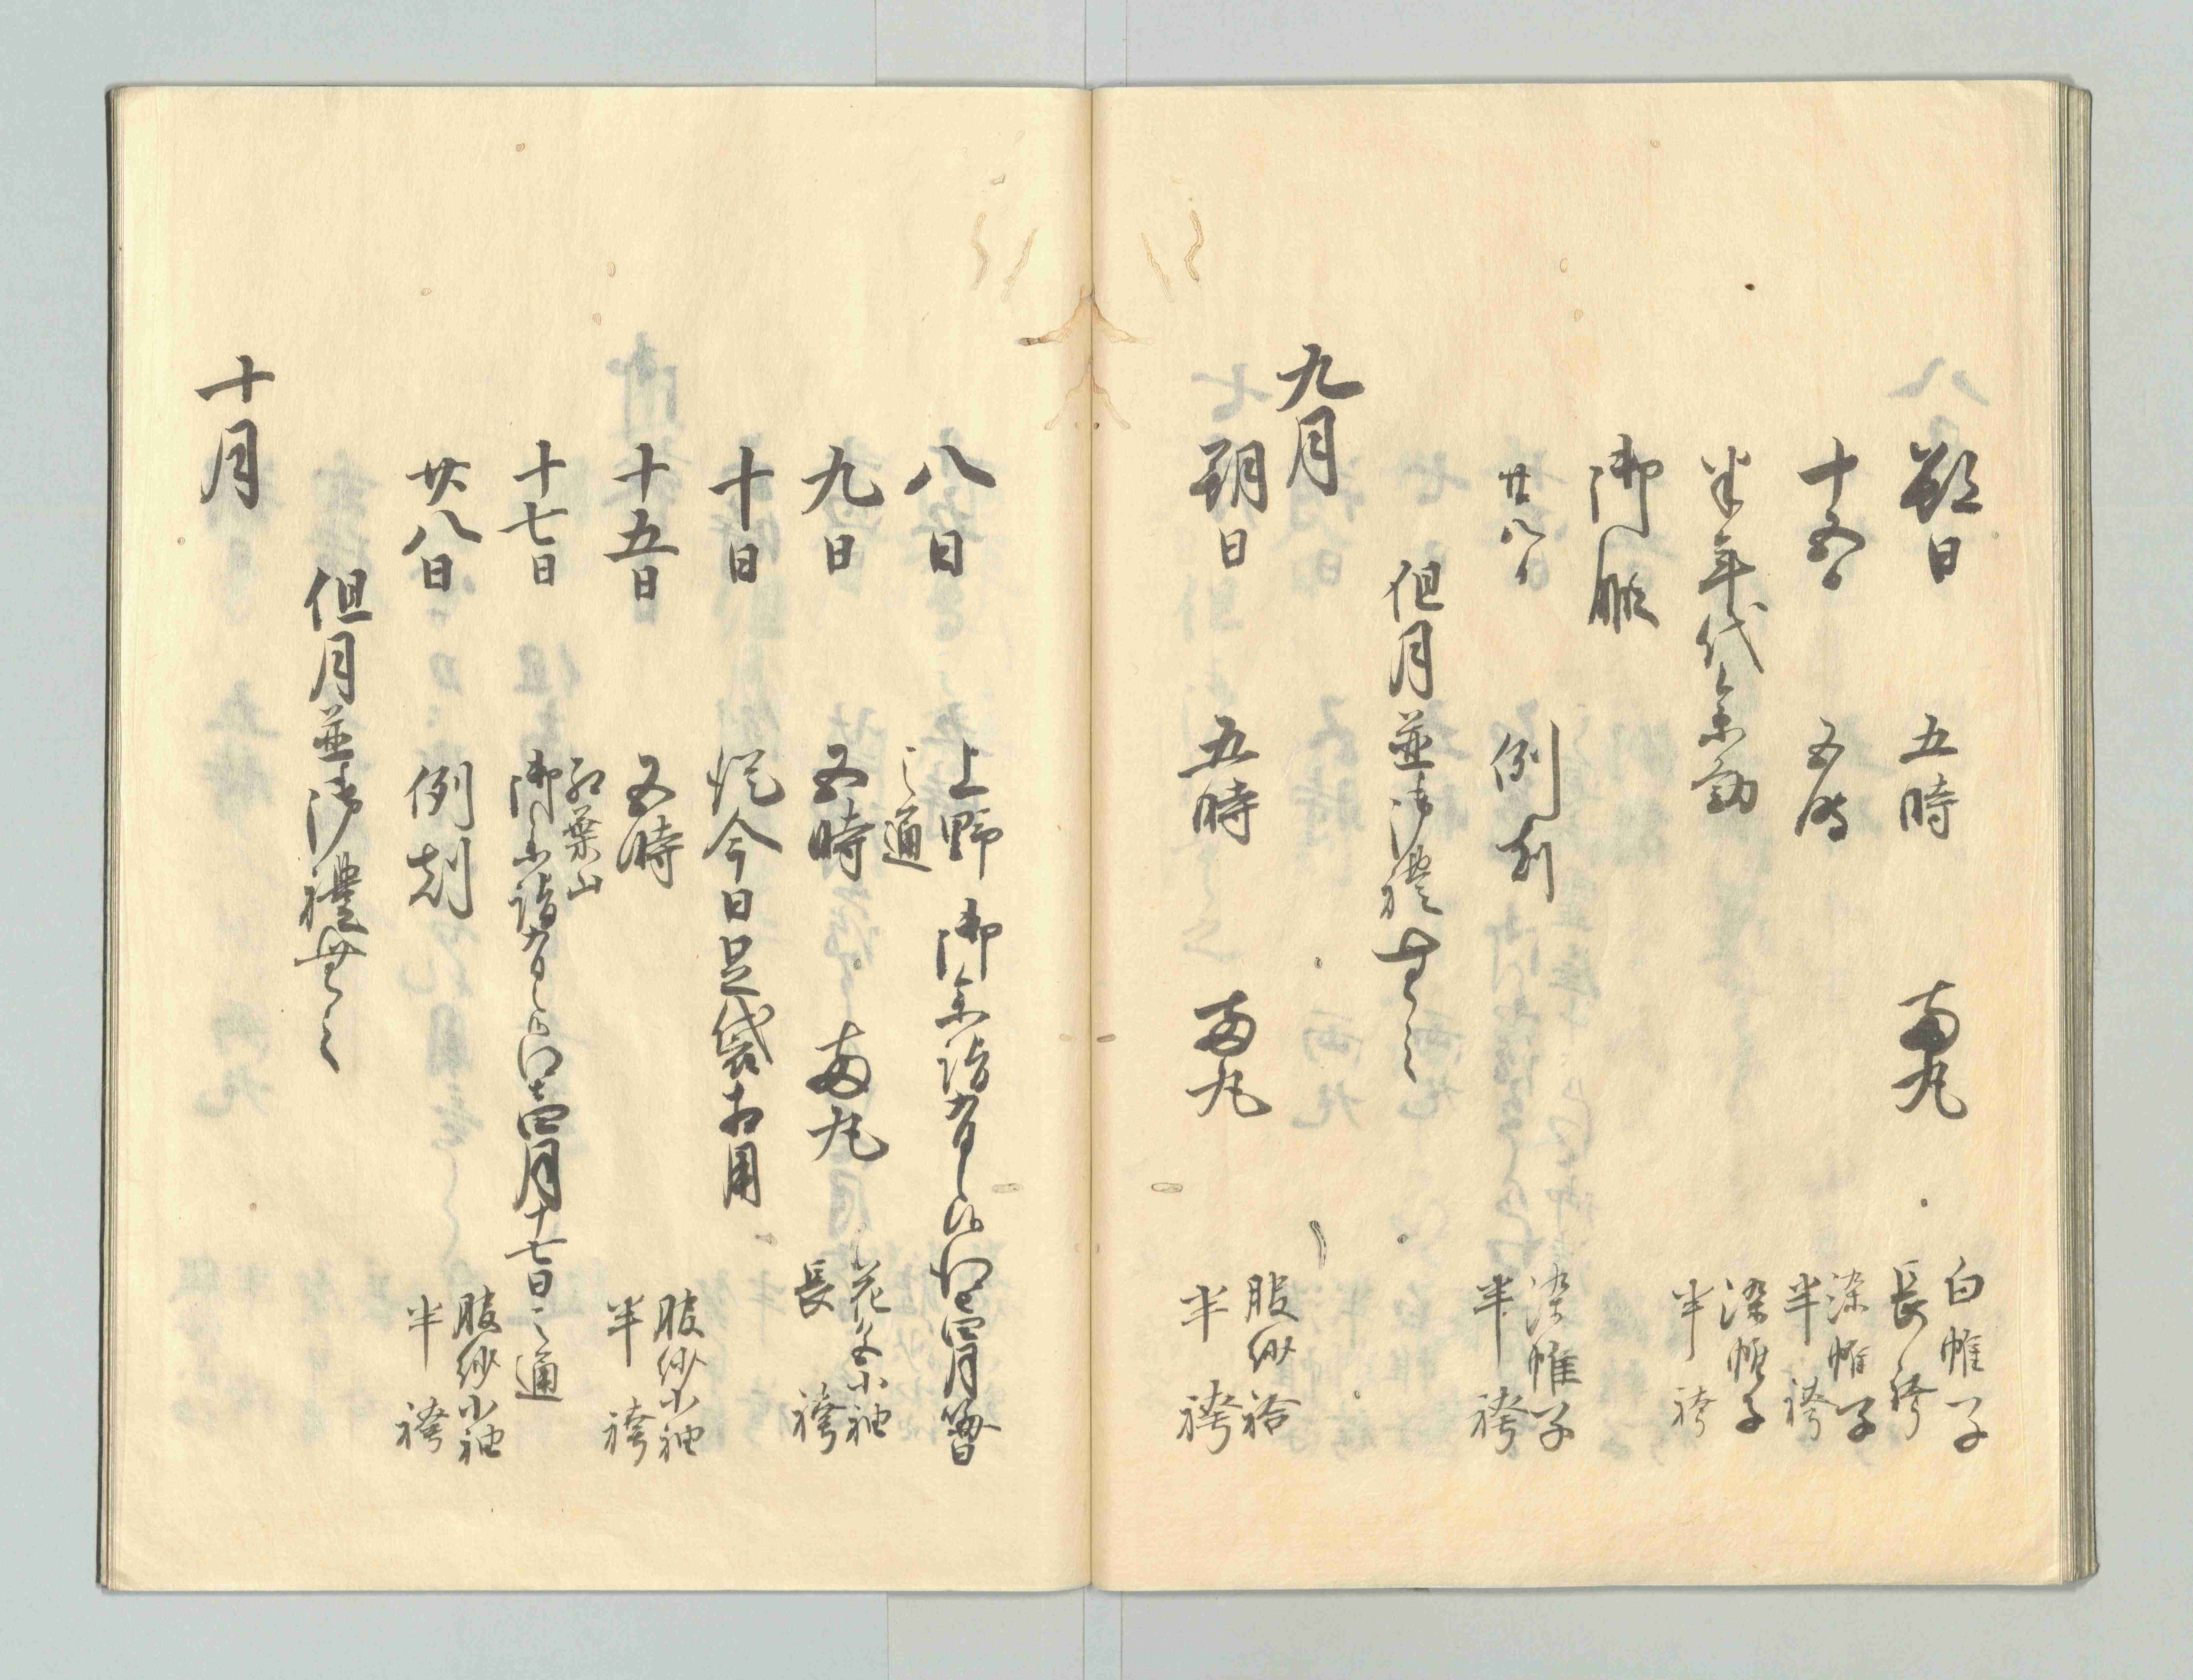 朔日 五時 両丸 白帷子
長袴
十五日 五時 染帷子
半袴
半年代参勤 染帷子
半袴
御暇
廿八日 例刻 染帷子
半袴
但月並御禮無之
九月
朔日 五時 両丸 服紗袷
半袴
八日 上野 御参詣有之候得者四月晦日
之通
九日 五時 両丸 花色小袖
長袴
十日 従今日足袋相用
十五日 五時 服紗小袖
半袴
十七日 紅葉山
御参詣有之候得者四月十七日之通
廿八日 例刻 服紗小袖
半袴
但月並御禮無之
十月